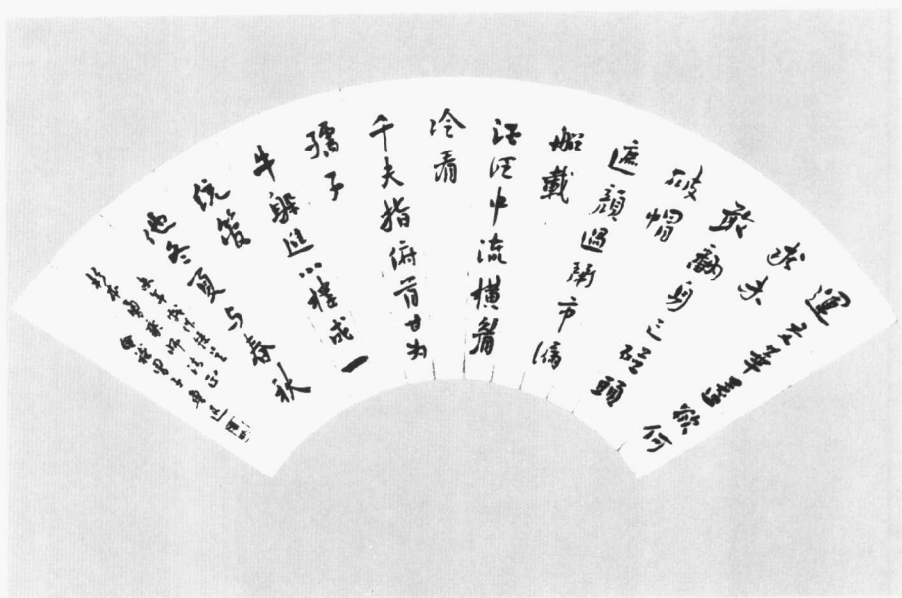 運交華蓋欲何
求未
敢翻身已碰頭
破帽
遮顏過鬧市漏
船載
酒泛中流橫眉
冷看
千夫指俯首甘為
孺子
牛躲進小樓成一
統管
他冬夏与春秋
杉本勇乘師法正
魯迅